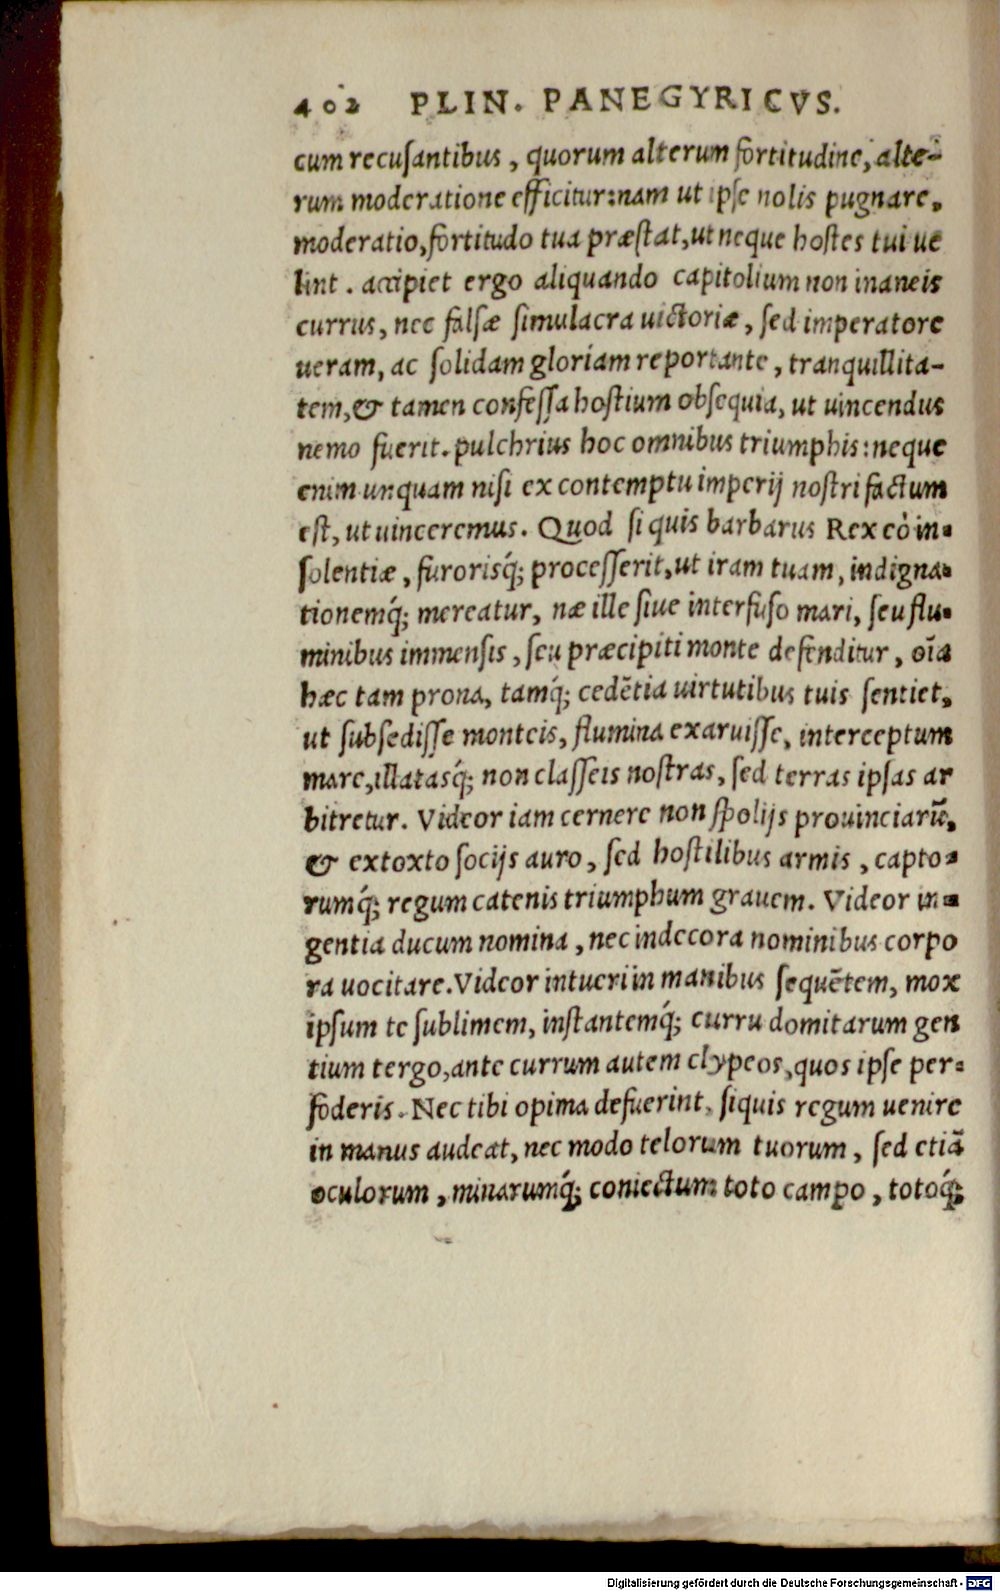 402 PLIN. PANEGYRICVS.
cum recusantibus, quorum alterum fortitudine, alte-
rum moderatione efficitur: nam ut ipse nolis pugnare,
moderatio, fortitudo tua præstat, ut neque hostes tui ue
lint. accipiet ergo aliquando capitolium non inaneis
currus, nec falsæ simulacra uictoriæ, sed imperatore
ueram, ac solidam gloriam reportante, tranquillita-
tem, & tamen confessa hostium obsequia, ut uincendus
nemo fuerit. pulchrius hoc omnibus triumphis: neque
enim unquam nisi ex contemptu imperij nostri factum
est, ut uinceremus. Quod si quis barbarus Rex eò in-
solentiæ, furorisq́; processerit, ut iram tuam, indigna-
tionemq́; mereatur, næ ille siue interfuso mari, seu flu-
minibus immensis, seu præcipiti monte defenditur, oĩa
hæc tam prona, tamq́; cedẽtia uirtutibus tuis sentiet,
ut subsedisse monteis, flumina exaruisse, interceptum
mare, illatasq́; non classeis nostras, sed terras ipsas ar
bitretur. Videor iam cernere non spolijs prouinciarũ,
& extoxto socijs auro, sed hostilibus armis, capto-
rumq́; regum catenis triumphum grauem. Videor in-
gentia ducum nomina, nec indecora nominibus corpo
ra uocitare. Videor intueri in manibus sequẽtem, mox
ipsum te sublimem, instantemq́; curru domitarum gen
tium tergo, ante currum autem clypeos, quos ipse per-
foderis. Nec tibi opima defuerint, siquis regum uenire
in manus audeat, nec modo telorum tuorum, sed etiã
oculorum, minarumq́; coniectum toto campo, totoq́;
Digitalisierung gefördert durch die Deutsche Forschungsgemeinschaft - DFG